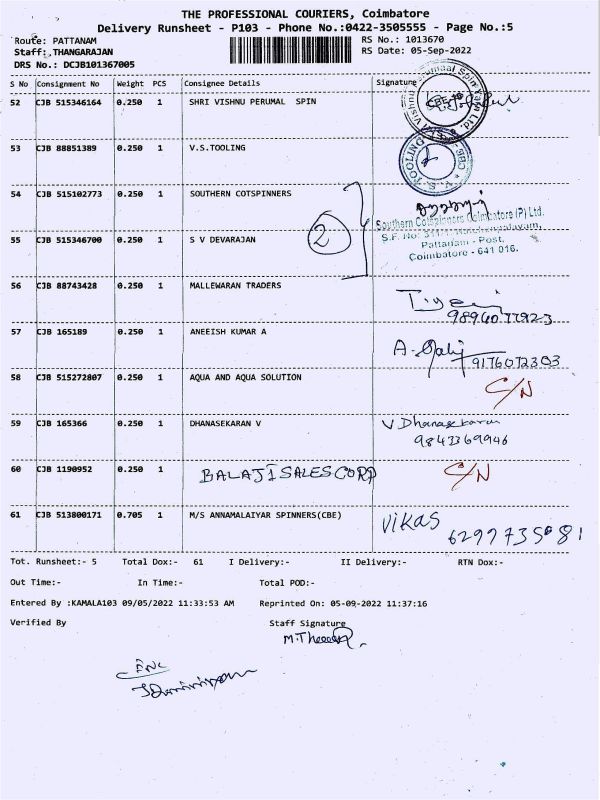 THE PROFESSIONAL COURIERS, Coimbatore
Delivery Runsheet - P103 - Phone No.:0422-3505555 - Page No.:5
Route: PATTANAM
RS No.: 1013670
Staff: THANGARAJAN
RS Date: 05-Sep-2022
DRS No.: DCJB101367005
S No Consignment No Weight PCS Consignee Details Signature
52 CJB 515346164 0.250 1 SHRI VISHNU PERUMAL SPIN
53 CJB 88851389 0.250 1 V.S.TOOLING
V. S. TOOLING
54 CJB 515102773 0.250 1 SOUTHERN COTSPINNERS
2
Southern Cotspinners Coimbatore (P) Ltd.
55 CJB 515346700 0.250 1 S V DEVARAJAN
Pattanam - Post.
Coimbatore - 641 016.
56 CJB 88743428 0.250 1 MALLEWARAN TRADERS
57 CJB 165189 0.250 1 ANEEISH KUMAR A
9176072303
58 CJB 515272807 0.250 1 AQUA AND AQUA SOLUTION
C/N
59 CJB 165366 0.250 1 DHANASEKARAN V
V Dhanasekaran
9843369946
60 CJB 1190952 0.250 1 BALAJI SALES CORP
C/N
61 CJB 513800171 0.705 1 M/S ANNAMALAIYAR SPINNERS(CBE)
Vikas
Tot. Runsheet:- 5 Total Dox:- 61 I Delivery:- II Delivery:- RTN Dox:-
Out Time:- In Time:- Total POD:-
Entered By :KAMALA103 09/05/2022 11:33:53 AM Reprinted On: 05-09-2022 11:37:16
Verified By Staff Signature